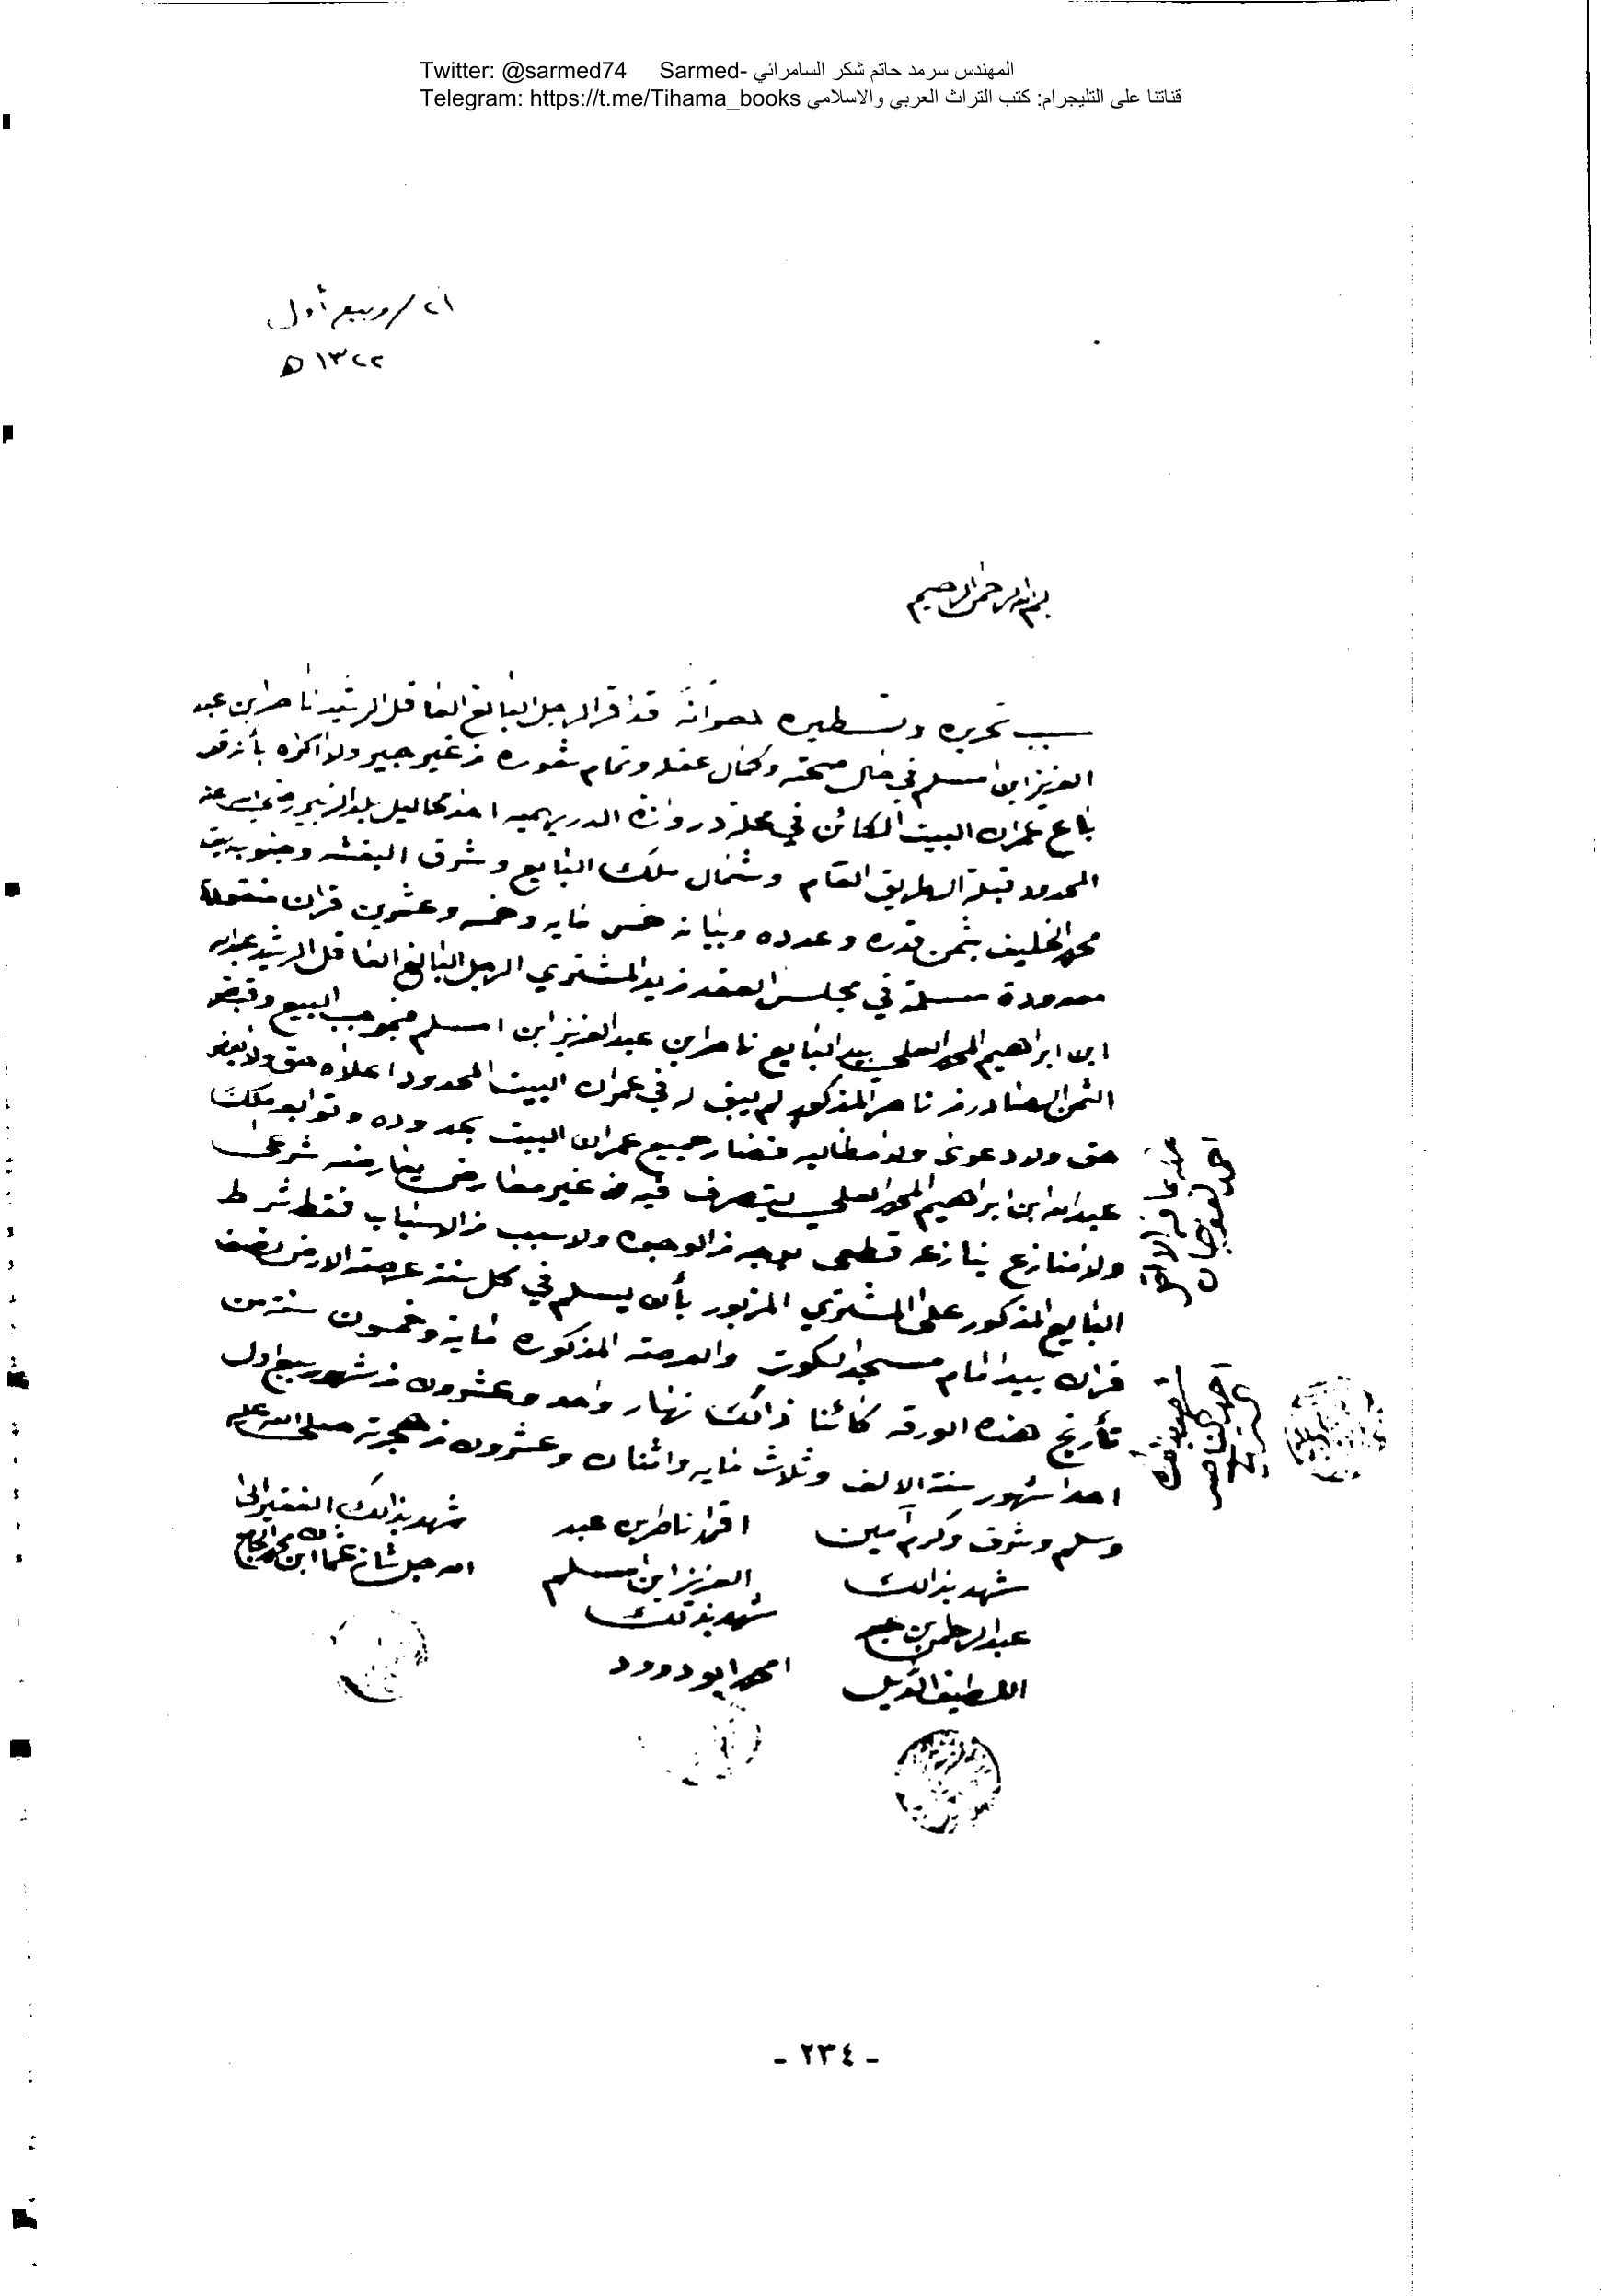 Twitter: @sarmed74 Sarmed- المهندس سرمد حاتم شكر السامرائي
Telegram: https://t.me/Tihama_books قناتنا على التليجرام: كتب التراث العربي والاسلامي
٢١/ربيع أول
١٣٢٢ ه
بسم الله الرحمن الرحيم
سبب تحريره وتسطيره هو انه قد اقر الرجل البالغ العاقل الرشيد ناصر ابن عبد
العزيز ابن مسلم في حال صحته وكمال عقله وتمام شعوره من غير جبر ولا اكراه بأنه قد
باع عمران البيت الكائن في محلة دروازة الدريهميه احد محاليل بلد الزبير رضي الله عنه
المحدود قبلة الطريق العام وشمال ملك البايع وشرق وجنوب بيت
محمد الخليف بثمن قدره وعدده وبيانه خمس مايه وخمسه وعشرين قران منقودة
معدودة مسلمة في مجلس العقد من يد المشتري الرجل البالغ العاقل الرشيد عبدالله
ابن ابراهيم المحمد العلي بيد البايع ناصر ابن عبدالعزيز ابن مسلم فبموجب البيع وقبض
الثمن الصادر من ناصر المذكور لم يبق له في عمران البيت المحدود اعلاه حق ولا بعض
حق ولا دعوى ولا مطالبه فصار جميع عمران البيت بحدوده وتوابعه ملك
عبدالله ابن ابراهيم المحمد العلي يتصرف فيه من غير معارض يعارضه شرعى
ولا منازع ينازعه قطعى بوجه من الوجوه ولا سبب من الاسباب فقط شرط
البايع المذكور على المشتري المزبور بأن يسلم في كل سنة عرصة الارض نصف
قران بيد امام مسجد الكوت والعرصه المذكوره ماية وخمسون سنة من
تأريخ هذه الورقه كائنا ذالك نهار واحد وعشرون من شهر ربيع اول
احد شهور سنة الالف وثلاث مايه واثنان وعشرون من هجرته صلى الله عليه
وسلم وشرف وكرم آمين
اقر ناصر ابن عبد
العزيز ابن مسلم
شهد بذالك الفقير الى
الله جل شانه عثمان ابن محمد الجامع
شهد بذالك
عبد الرحمن بن عبد
اللطيف
شهد بذلك
احمد ابو دوود